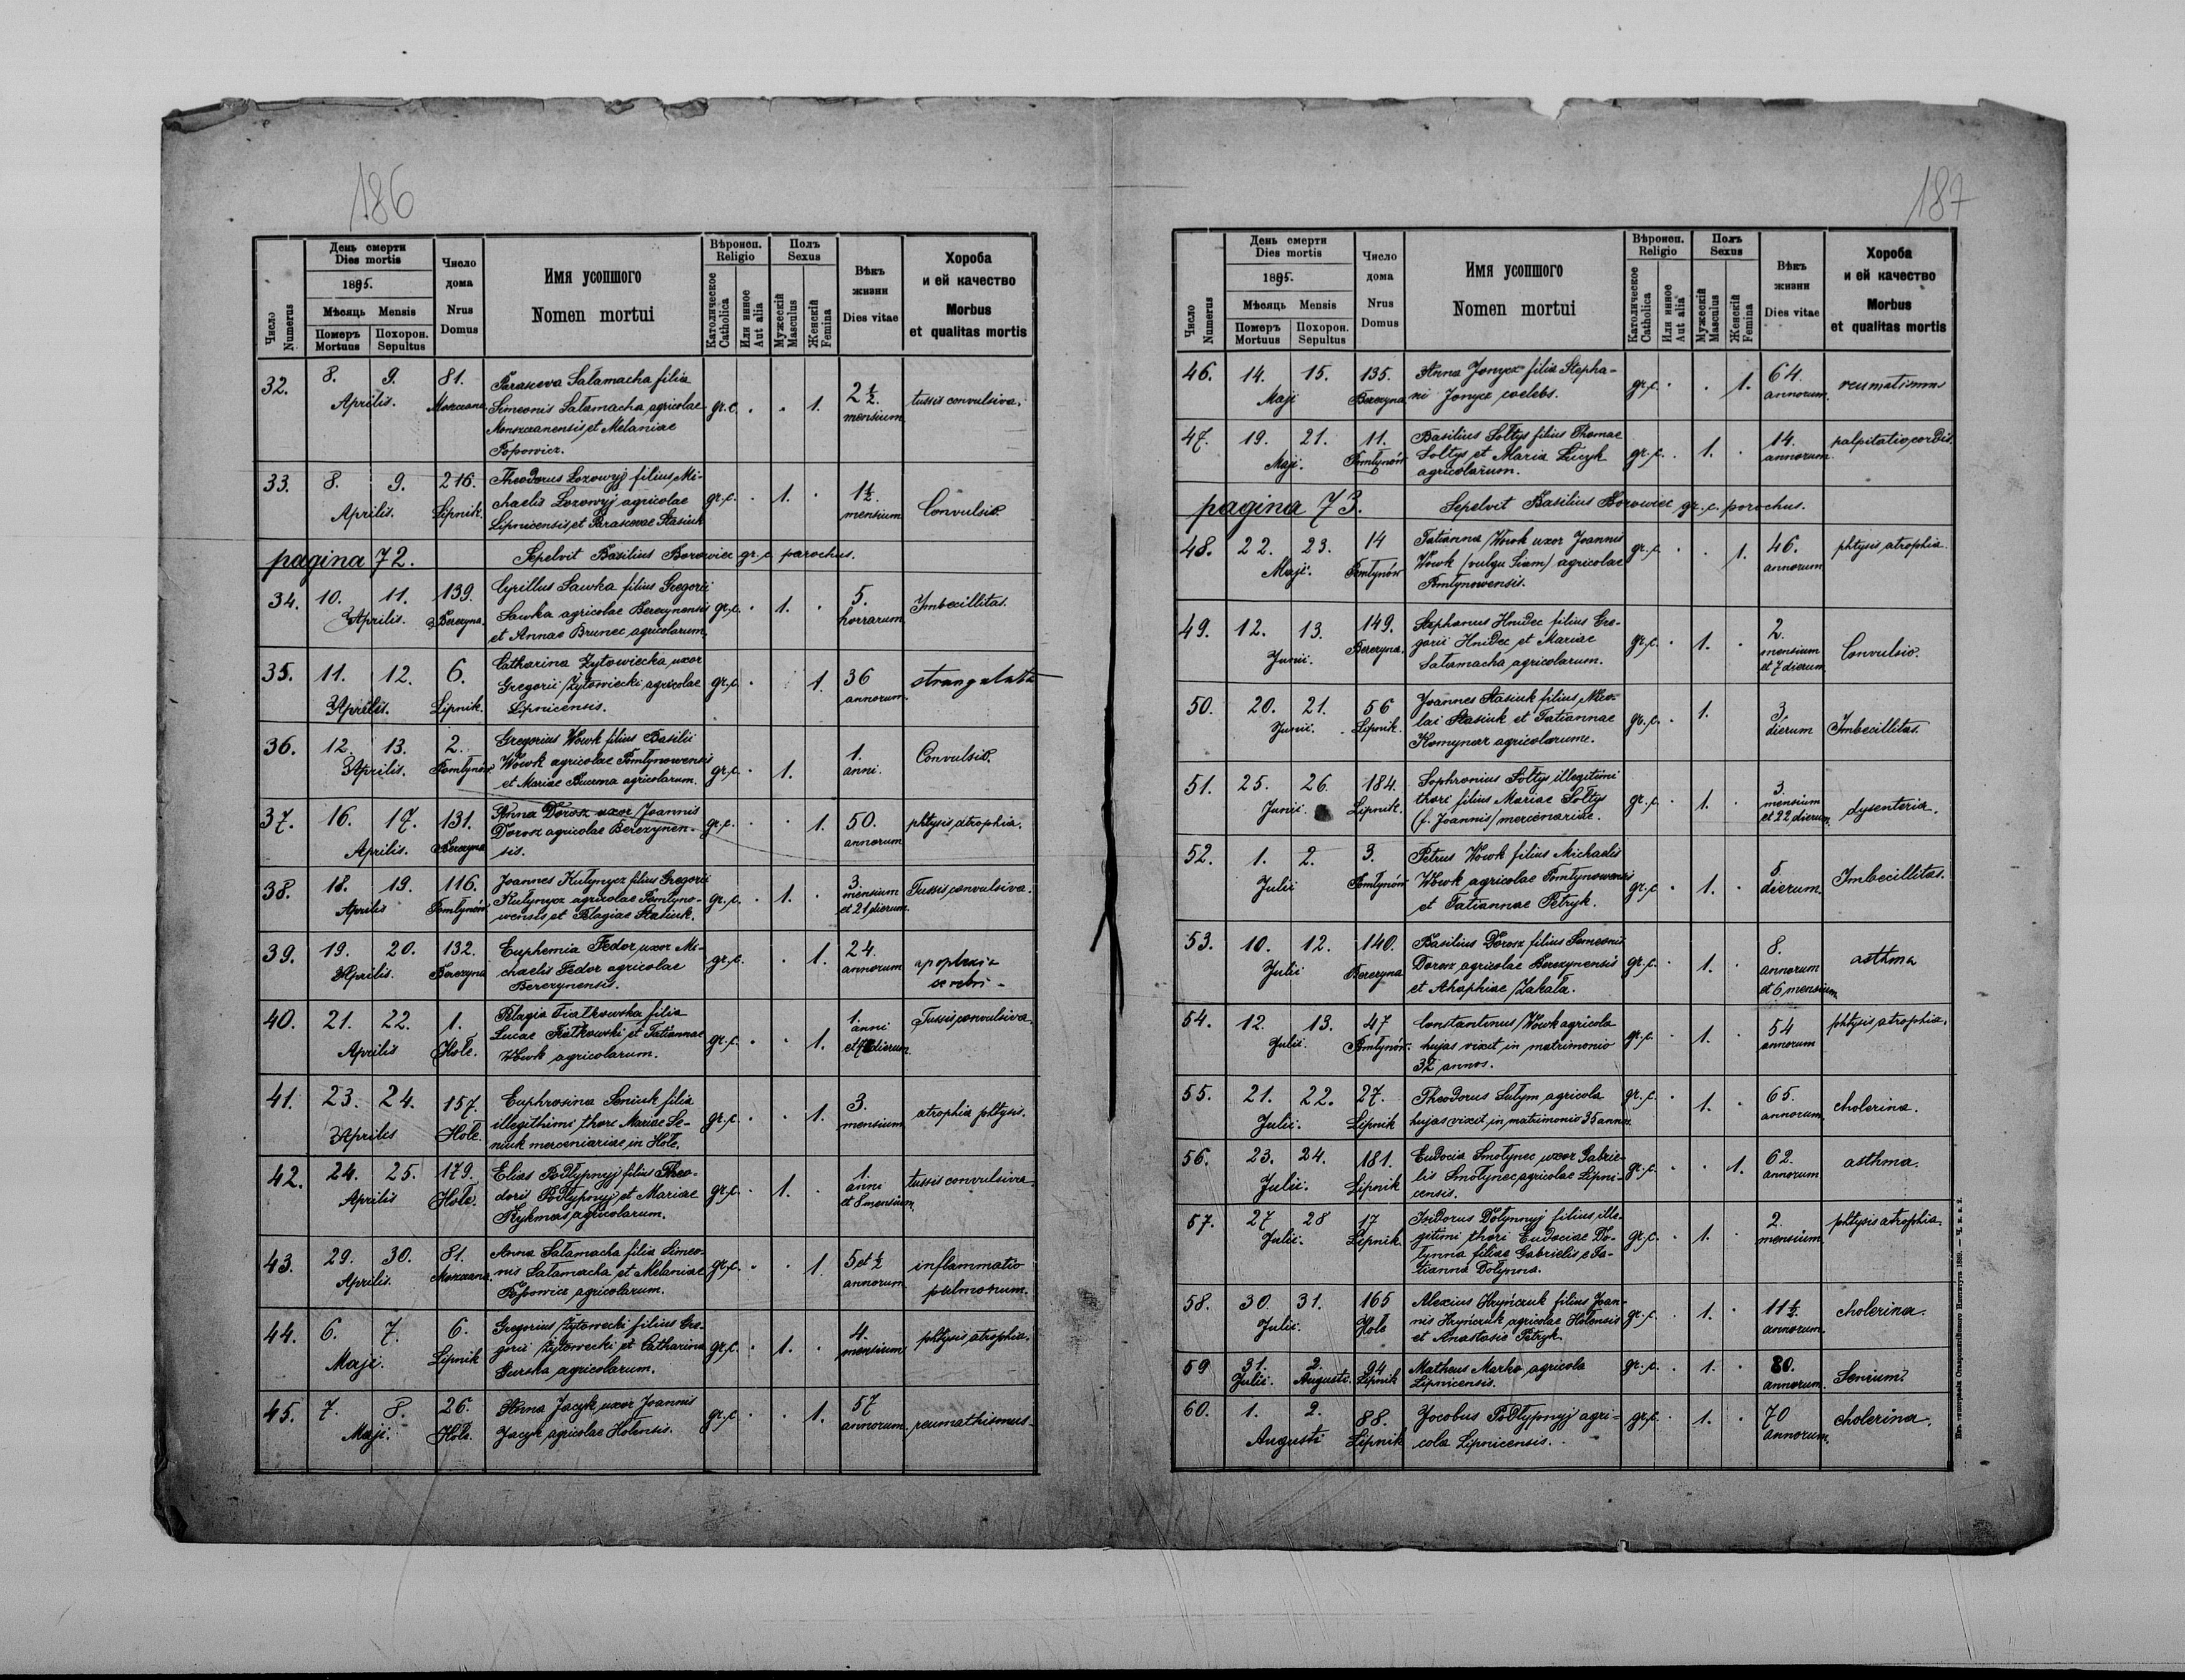 186
Число
Numerus
День смерти
Dies mortis
1895.
Мѣсяць Mensis
Померъ
Mortuus
Похорон.
Sepultus
Число
дома
Nrus
Domus
Имя усопшого
Nomen mortui
Вѣроисп.
Religio
Католическое
Catholica
Или инное
Aut alia
Полъ
Sexus
Мужескій
Masculus
Женскій
Femina
Вѣкъ
жизни
Dies vitae
Хороба
и ей качество
Morbus
et qualitas mortis
32. 8. 9. Aprilis. 81.
Parasceva Sałamacha filia
Simeonis Sałamacha agricolae
et Melaniae
Popowicz.
gr. c. 1. 2½ mensium tussis convulsiva.
33. 8. 9. Aprilis. 216. Lipnik.
Theodorus Lozowyj filius Mi-
chaelis Lozowyj agricolae
Lipnicensis et Parascevae Stasiuk
gr. c. 1. 1½ mensium Convulsio.
pagina 72. Sepelvit Basilius Borowiec gr. c. parochus.
34. 10. 11. Aprilis. 139. Berezyna.
Cyrillus Sawka filius Gregorii
Sawka agricolae Berezynensis
et Annae Brunec agricolarum.
gr. c. 1. 5. horrarum Imbecillitas.
35. 11. 12. Aprilis. 6. Lipnik.
Catharina Żytowiecka uxor
Gregorii Żytowiecki agricolae
Lipnicensis.
gr. c. 1. 36 annorum. strangulata
36. 12. 13. Aprilis. 2. Pomłynów
Gregorius Wowk filius Basilii
Wowk agricolae Pomłynowensis
et Mariae Bucma agricolarum.
gr. c. 1. 1. anni. Convulsio.
37. 16. 17. Aprilis. 131. Berezyna
Anna Dorosz uxor Joannis
Dorosz agricolae Berezynen-
sis.
gr. c. 1. 50. annorum phtysis, atrophia.
38. 18. 19. Aprilis 116. Pomłynów
Joannes Kułynycz filius Gregorii
Kułynycz agricolae Pomłyno-
wensis, et Pelagiae Stasiuk.
gr. c. 1. 3 mensium et 21 dierum. Tussis convulsiva.
39. 19. 20. Aprilis. 132. Berezyna
Euphemia Fedor, uxor Mi-
chaelis Fedor agricolae
Berezynensis.
gr. c. 1. 24. annorum apoplexia cerebri
40. 21. 22. Aprilis 1. Hołe.
Pelagia Fiałkowska filia
Lucae Fiałkowski et Tatiannae
Wowk agricolarum.
gr. c. 1. 1. anni et dierum. Tussis, convulsiva
41. 23. 24. Aprilis 157. Hołe.
Euphrosina Seniuk filia
illegithimi thori Mariae Se-
niuk merceniariae in Hołe.
gr. c. 1. 3. mensium atrophia phtysis.
42. 24. 25. Aprilis 179. Hołe.
Elias Podłypnyj filius Theo-
doris Podłypnyj et Mariae
agricolarum.
gr. c. 1. 1. anni et 8 mensium tussis convulsiva
43. 29. 30. Aprilis. 81.
Anna Sałamacha filia Simeo-
nis Sałamacha, et Melaniae
Popowicz agricolarum.
gr. c. 1. 5 et ½ annorum inflammatio pulmonum.
44. 6. 7. Maji. 6. Lipnik
Gregorius Żytowiecki filius Gre-
gorii Żytowiecki et Catharina
Gurska agricolarum.
gr. c. 1. 4. mensium phtysis, atrophia.
45. 7. 8. Maji. 26. Hołe.
Anna Jacyk, uxor Joannis
Jacyk agricolae Holensis.
gr. c. 1. 57 annorum. reumathismus
187
Число
Numerus
День смерти
Dies mortis
1895.
Мѣсяць Mensis
Померъ
Mortuus
Похорон.
Sepultus
Число
дома
Nrus
Domus
Имя усопшого
Nomen mortui
Вѣроисп.
Religio
Католическое
Catholica
Или инное
Aut alia
Полъ
Sexus
Мужескій
Masculus
Женскій
Femina
Вѣкъ
жизни
Dies vitae
Хороба
и ей качество
Morbus
et qualitas mortis
46. 14. 15. Maji 135. Berezyna
Anna Jonycz filia Stepha-
ni Jonycz coelebs.
gr. c. 1. 64. annorum. reumatismus
47. 19. 21. Maji. 11. Pomłynów
Basilius Sołtys filius Thomae
Sołtys et Maria Lucyk
agricolarum.
gr. c. 1. 14. annorum palpitatio, cordis.
pagina 73. Sepelvit Basilius Borowiec gr. c. parochus.
48. 22. 23. Maji. 14 Pomłynów
Tatianna Wowk uxor Joannis
Wowk (vulgu ) agricolae
Pomłynowensis.
gr. c. 1. 46. annorum phtysis, atrophia.
49. 12. 13. Junii. 149. Berezyna.
Stephanus Hnidec filius Gre-
gorii Hnidec et Mariae
Sałamacha, agricolarum.
gr. c. 1. 2. mensium et 7 dierum Convulsio.
50. 20. 21. Junii. 56 Lipnik.
Joannes Stasiuk filius Nico-
lai Stasiuk et Tatiannae
agricolarum.
gr. c. 1. 3 dierum Imbecillitas.
51. 25. 26. Junii. 184. Lipnik.
Sophronius Sołtys illegitimi
thori filius Mariae Sołtys
(f. Joannis) mercenariae.
gr. c. 1. 3. mensium et 22 dierum. dysenteria.
52. 1. 2. Julii 3. Pomłynów
Petrus Wowk filius Michaelis
Wowk agricolae Pomłynowensis
et Tatiannae Petryk.
gr. c. 1. 5. dierum. Imbecillitas.
53. 10. 12. Julii 140. Berezyna
Basilius Dorosz filius Semeonis
Dorosz agricolae Berezynensis
et Ahaphiae Zakała.
gr. c. 1. 8. annorum et 6 mensium asthma
54. 12. 13. Julii. 47 Pomłynów.
Constantinus Wowk agricola
hujas vixit in matrimonio
32 annos.
gr. c. 1. 54 annorum phtysis, atrophia.
55. 21. 22. Julii. 27. Lipnik
Theodorus Sułym agricola
hujas vixit in matrimonio 35 annos
gr. c. 1. 65. annorum cholerina.
56. 23. 24. Julii. 181. Lipnik
Eudocia Smołynec, uxor Gabrie-
lis Smołynec, agricolae Lipni-
censis.
gr. c. 1. 62. annorum asthma.
57. 27 28 Julii. 17 Lipnik.
Isidorus Dołynnyj filius, ille-
gitimi thori Eudociae Do-
łynna filiae Gabrielis, e Ta-
tianna Dołynna.
gr. c. 1. 2. mensium phtysis atrophia.
58. 30. 31. Julii. 165 Hołe
Alexius Hryńczuk filius Joan-
nis Hryńczuk, agricolae Holensis
et Anastasie Petryk.
gr. c. 1. 11½. annorum. cholerina.
59 31. Julii. 2. Augusti. 94 Lipnik
Matheus Marko agricola
Lipnicensis.
gr. c. 1. 80. annorum. Senium
60. 1. 2. Augusti 88. Lipnik
Jocobus Podłypnyj agri-
cola Lipnicensis.
gr. c. 1. 70 annorum. cholerina.
Изъ типографіи Ставропигійского Института 1889. — Ч. в. в. 2.